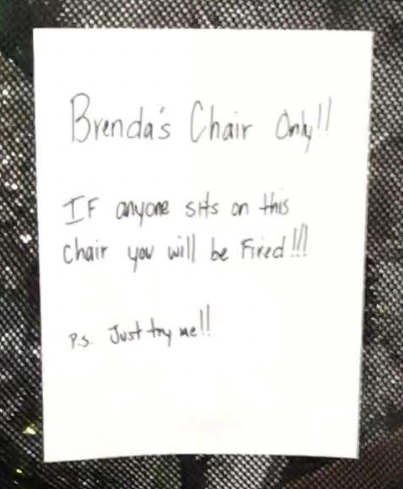 Brenda's Chair Only!!
IF anyone sits on this
chair you will be Fired!!!
P.S. Just try me!!